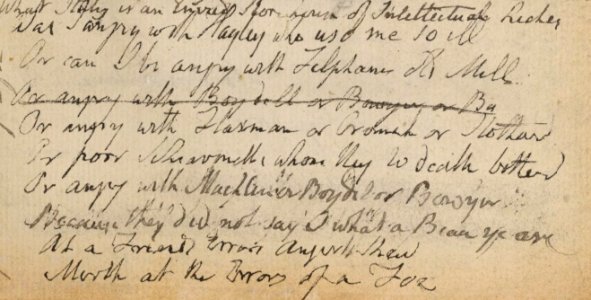 Italy is an Envied Store house of Intellectual Riches
Was I angry with Hayley who usd me so ill
Or can I be angry with Felphams old Mill
Or angry with Boydell or Bowyer or Ba
Or angry with Flaxman or Cromek or Stothard
Or poor Schiavonetti whom they to death botherd
Or angry with Macklin or Boydel or Bowyer
Because they did not say O what a Beau ye are
At a Friends Errors Anger shew
Mirth at the Errors of a Foe